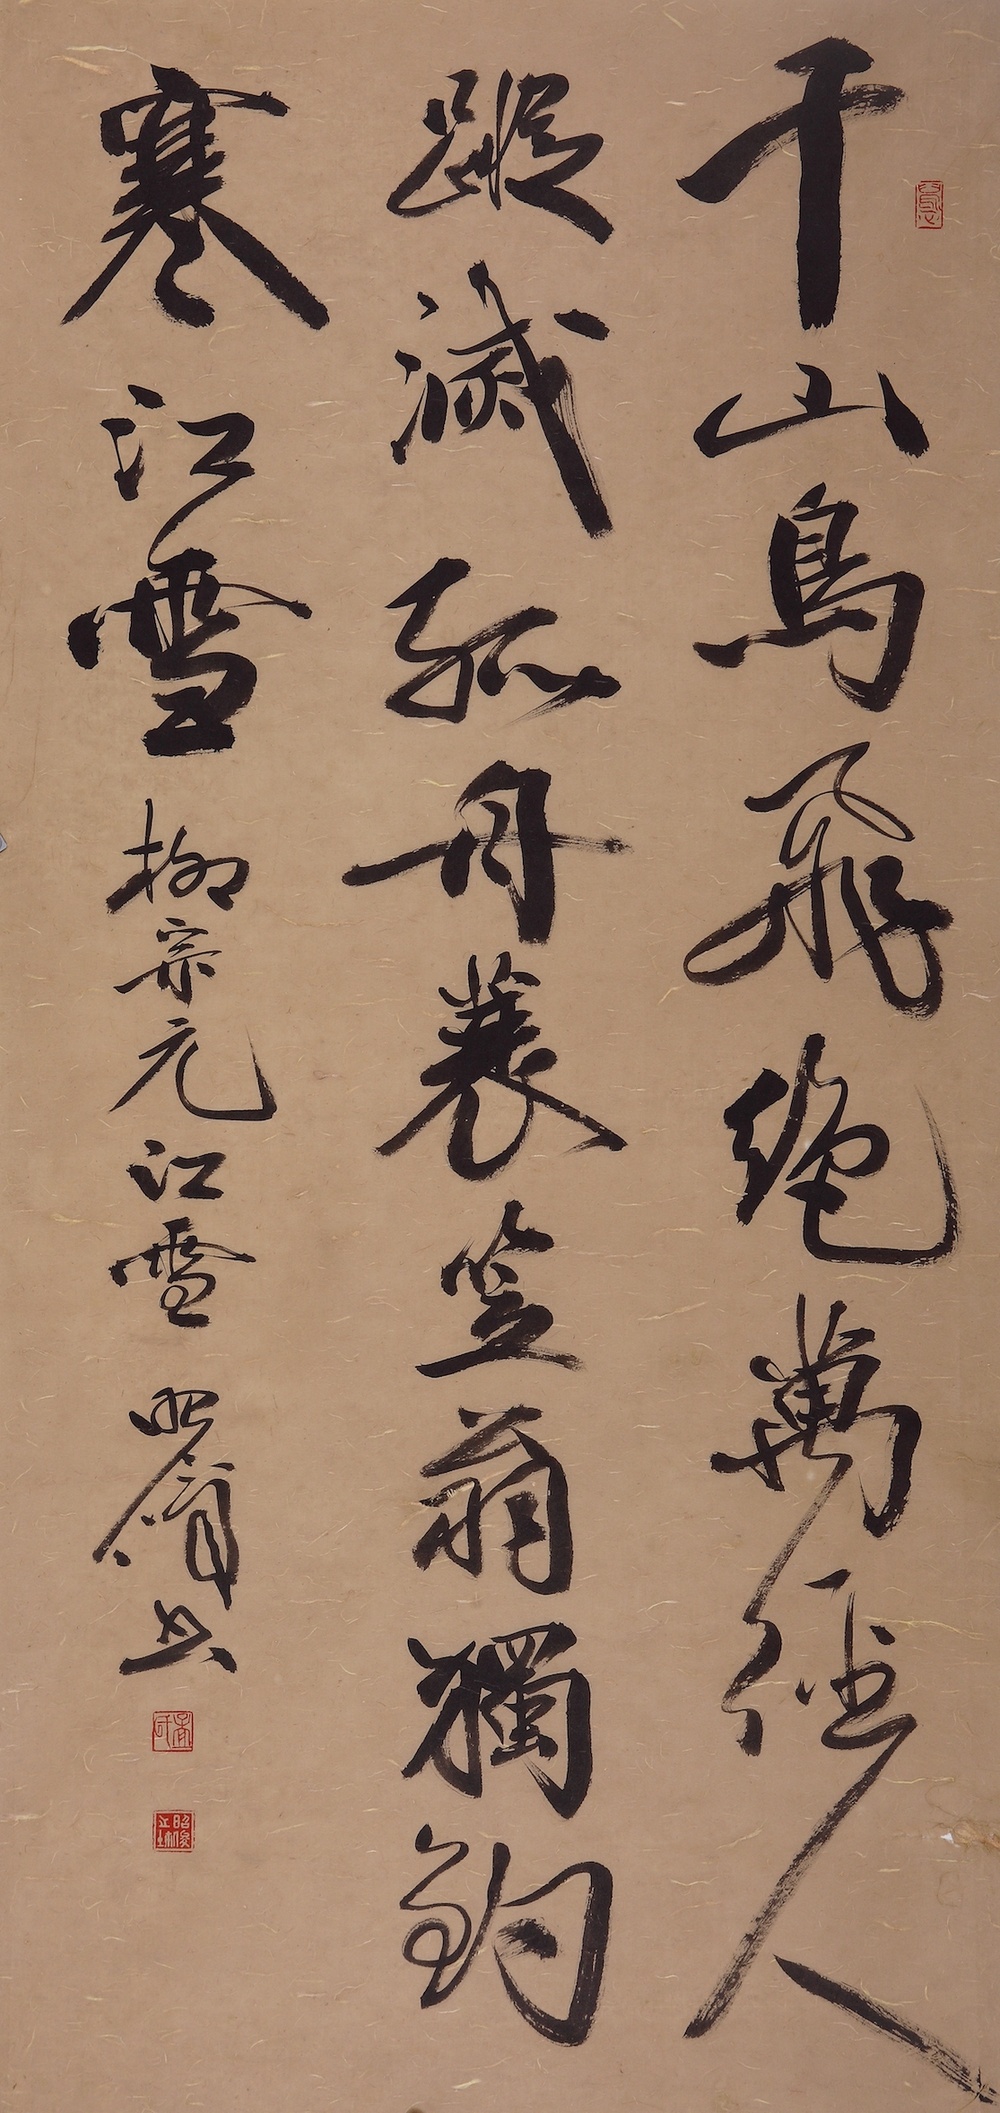 千山鳥飛絕萬徑人
蹤滅孤舟蓑笠翁獨釣
寒江雪 柳宗元江雪 昭 書